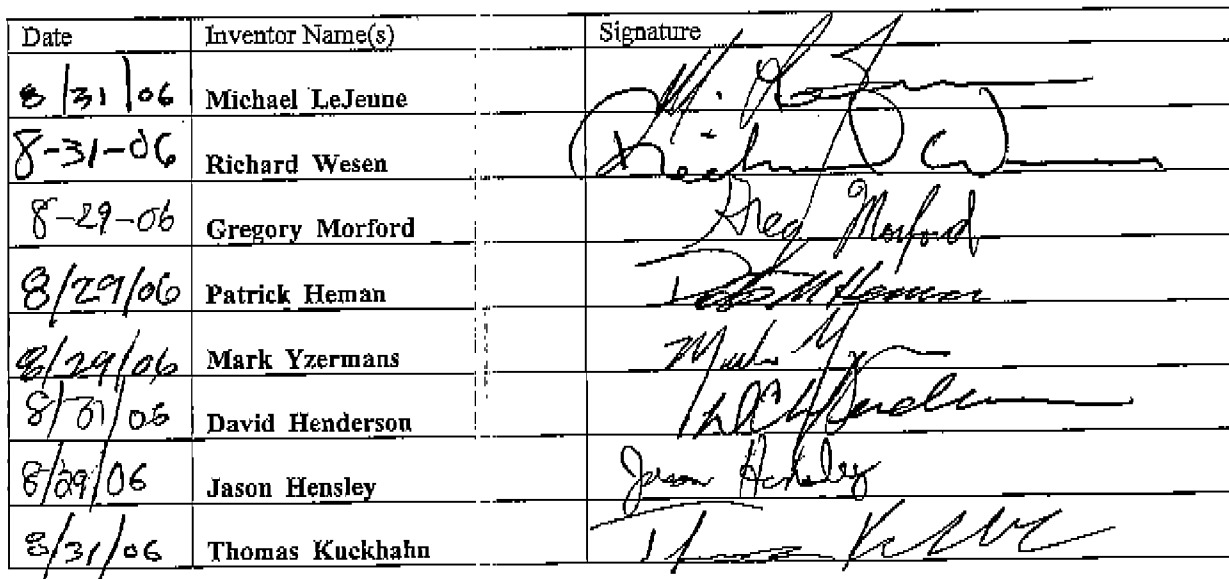 Date Inventor Name(s) Signature
8/31/06 Michael LeJeune
8-31-06 Richard Wesen
8-29-06 Gregory Morford Greg Morford
8/29/06 Patrick Heman
8/29/06 Mark Yzermans
8/31/06 David Henderson
8/29/06 Jason Hensley Jason Hensley
8/31/06 Thomas Kuckhahn